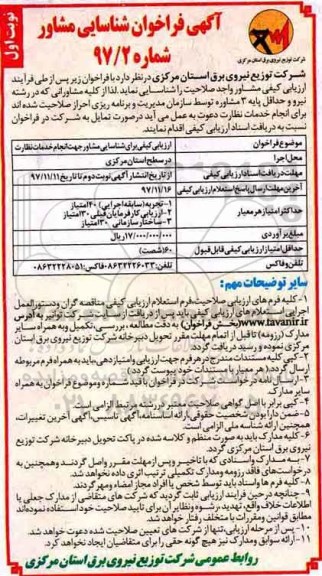 نوبت اول
آگهی فراخوان شناسایی مشاور
شماره ۹۷/۲
شرکت توزیع نیروی برق استان مرکزی
شرکت توزیع نیروی برق استان مرکزی در نظر دارد با فراخوان زیر پس از طی فرآیند
ارزیابی کیفی مشاور واجد صلاحیت را شناسایی نماید. لذا از کلیه مشاورانی که در رشته
نیرو و حداقل پایه ۳ مشاوره توسط سازمان مدیریت و برنامه ریزی احراز صلاحیت شده اند
برای انجام خدمات نظارت دعوت به عمل می آید در صورت تمایل به شرکت در فراخوان
نسبت به دریافت اسناد ارزیابی کیفی اقدام نمایند.
موضوع فراخوان ارزیابی کیفی برای شناسایی مشاور جهت انجام خدمات نظارت
محل اجرا در سطح استان مرکزی
مهلت دریافت اسناد ارزیابی کیفی از تاریخ انتشار آگهی نوبت دوم تا تاریخ ۹۷/۱۱/۱۱
آخرین مهلت ارسال پاسخ استعلام ارزیابی کیفی ۹۷/۱۱/۱۶
حداکثر امتیاز هر معیار ۱- تجربه (سابقه اجرایی) ۴۰ امتیاز
۲- ارزیابی کارفرمایان قبلی ۳۰ امتیاز
۳- ساختار سازمانی ۳۰ امتیاز
مبلغ برآوردی ۱۷/۰۰۰/۰۰۰/۰۰۰ ریال
حداقل امتیاز ارزیابی کیفی قابل قبول ۶۰ (شصت)
تلفن و فاکس تلفن: ۰۸۶۳۲۲۲۶۰۳۳ فاکس: ۰۸۶۳۲۲۲۸۰۵۱
سایر توضیحات مهم:
۱- کلیه فرم های ارزیابی صلاحیت، فرم استعلام ارزیابی کیفی مناقصه گران و دستورالعمل
اجرایی استعلام های ارزیابی کیفی باید پس از دریافت از سایت شرکت توانیر به آدرس
www.tavanir.ir (بخش فراخوان) به دقت مطالعه، بررسی، تکمیل و به همراه سایر
مدارک (رزومه) تا قبل از اتمام مهلت مقرر تحویل دبیرخانه شرکت توزیع نیروی برق استان
مرکزی نموده و رسید دریافت گردد.
۲- کپی کلیه مستندات مندرج در هر فرم جهت ارزیابی و امتیازدهی، باید به همراه فرم مربوطه
ارسال گردد. (هر معیار با مستندات خود پیوست گردد)
۳- ارسال نامه درخواست شرکت در فراخوان با قید شماره و موضوع فراخوان به همراه
سایر مدارک.
۴- کپی برابر با اصل گواهی صلاحیت معتبر در رشته مرتبط الزامی است.
۵- ضمن دارا بودن شخصیت حقوقی، ارائه اساسنامه، آگهی تاسیس، آگهی آخرین تغییرات،
همچنین ارائه شناسه ملی الزامی است.
۶- کلیه مدارک باید به صورت منظم و کلاسه شده در پاکت تحویل دبیرخانه شرکت توزیع
نیروی برق استان مرکزی گردد.
۷- به مدارک و اسنادی که با تاخیر و پس از مهلت مقرر واصل گردند و همچنین به
درخواست های فاقد رزومه و مدارک تکمیلی ترتیب اثری داده نخواهد شد.
۸- کلیه فرم ها و اسناد باید توسط شخص یا افراد مجاز امضاء و مهر گردند.
۹- چنانچه در حین فرآیند ارزیابی ثابت گردید که شرکت های متقاضی از مدارک جعلی یا
اطلاعات خلاف واقع، تهدید، رشوه و نظایر آن برای تایید صلاحیت خود استفاده نموده اند
مطابق قوانین و مقررات با متخلف رفتار خواهد شد.
۱۰- پس از مرحله ارزیابی تنها از شرکت های تعیین صلاحیت شده دعوت خواهد شد.
۱۱- ارائه سوابق و مدارک نیز هیچ گونه حقی را برای متقاضیان ایجاد نخواهد کرد.
روابط عمومی شرکت توزیع نیروی برق استان مرکزی